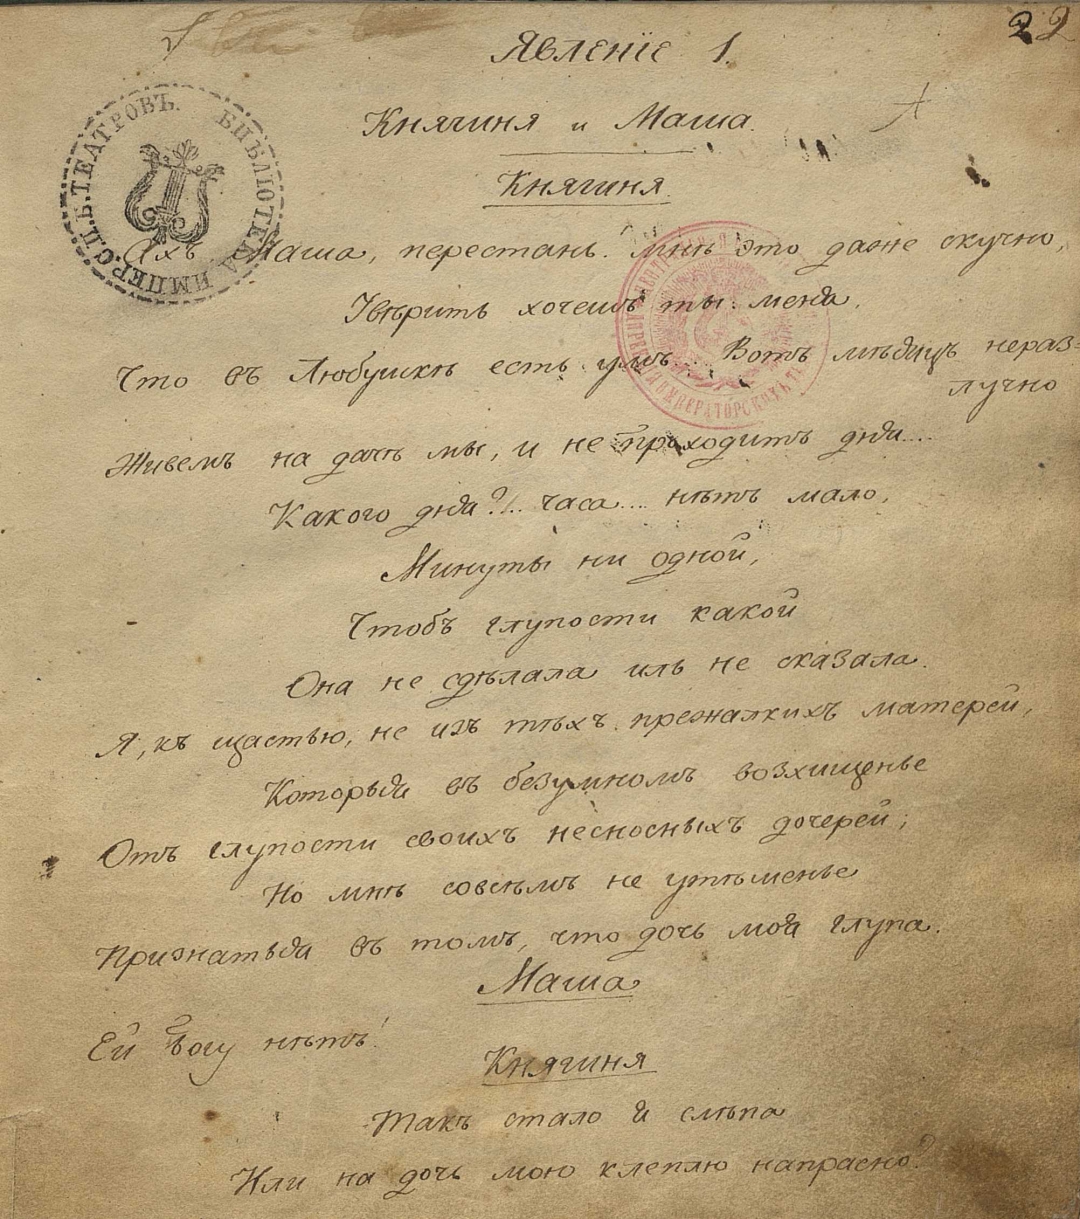 22
Явленіе 1.
Княгиня и Маша.
Княгиня.
БИБЛІОТЕКА ИМПЕР. С.П.Б. ТЕАТРОВЪ.
Ахъ Маша, перестань. мнѣ это даже скучно,
Увѣрить хочешь ты меня,
Что въ Любушкѣ есть умъ... Вотъ мѣсяцъ нераз=
лучно
Живемъ на дачѣ мы, и не проходитъ дня....
Какого дня?!.. часа.... нѣтъ мало,
Минуты ни одной,
Чтобъ глупости какой
Она не сдѣлала иль не сказала.
Я, къ щастью, не изъ тѣхъ прежалкихъ матерей,
Которыя въ безумномъ возхищенье
Отъ глупости своихъ несносныхъ дочерей;
Но мнѣ совсѣмъ не утѣшенье
Признаться въ томъ, что дочь моя глупа.
Маша
Ей Богу нѣтъ!
Княгиня
Такъ стало я слѣпа
Или на дочь мою клеплю напрасно?